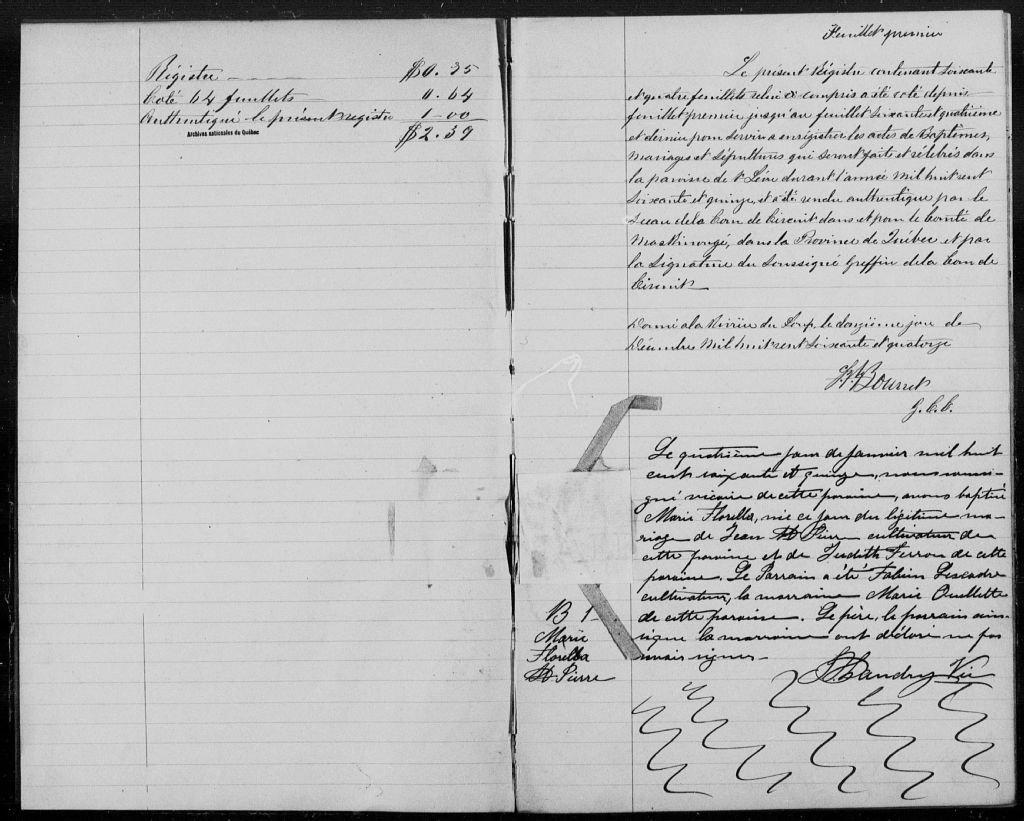 Régistre $0.35
Coté 64 feuillets 0.64
Authentiqué le présent registre 1-00
Archives nationales du Québec
$2.39
Feuillet premier
Le présent Régistre contenant Soixante
et quatre feuillets celui ci compris a été coté depuis
feuillet premier jusqu'au feuillet Soixante et quatrième
et dernier pour servir a enrégistrer les actes de Baptêmes,
Mariages et Sépultures qui seront faits et célebrés dans
la paroisse de St Léon durant l'année Mil huit cent
Soixante et quinze, et a été rendu authentique par le
Sceau de la Cour de Circuit dans et pour le Comté de
Maskinongé, dans la Province de Québec et par
la Signature du Soussigné Greffier de la Cour de
Circuit
Donné a la Rivière du Loup, le douzième jour de
Décembre Mil huit cent Soixante et quatorze
G.C.C.
Le quatrième jour de janvier mil huit
cent soixante et quinze, nous soussi-
gné vicaire de cette paroisse, avons baptisé
Marie Florella, née ce jour du légitime ma-
riage de Jean St Pierre cultivateur de
cette paroisse et de Judith Ferron de cette
paroisse. Le Parrain a été Fabien
cultivateur, la marraine Marie Ouellette
de cette paroisse. Le père, le parrain ain-
si que la marraine ont déclaré ne pas
savoir signer.
Landry Vic
B 1
Marie
Florella
St Pierre